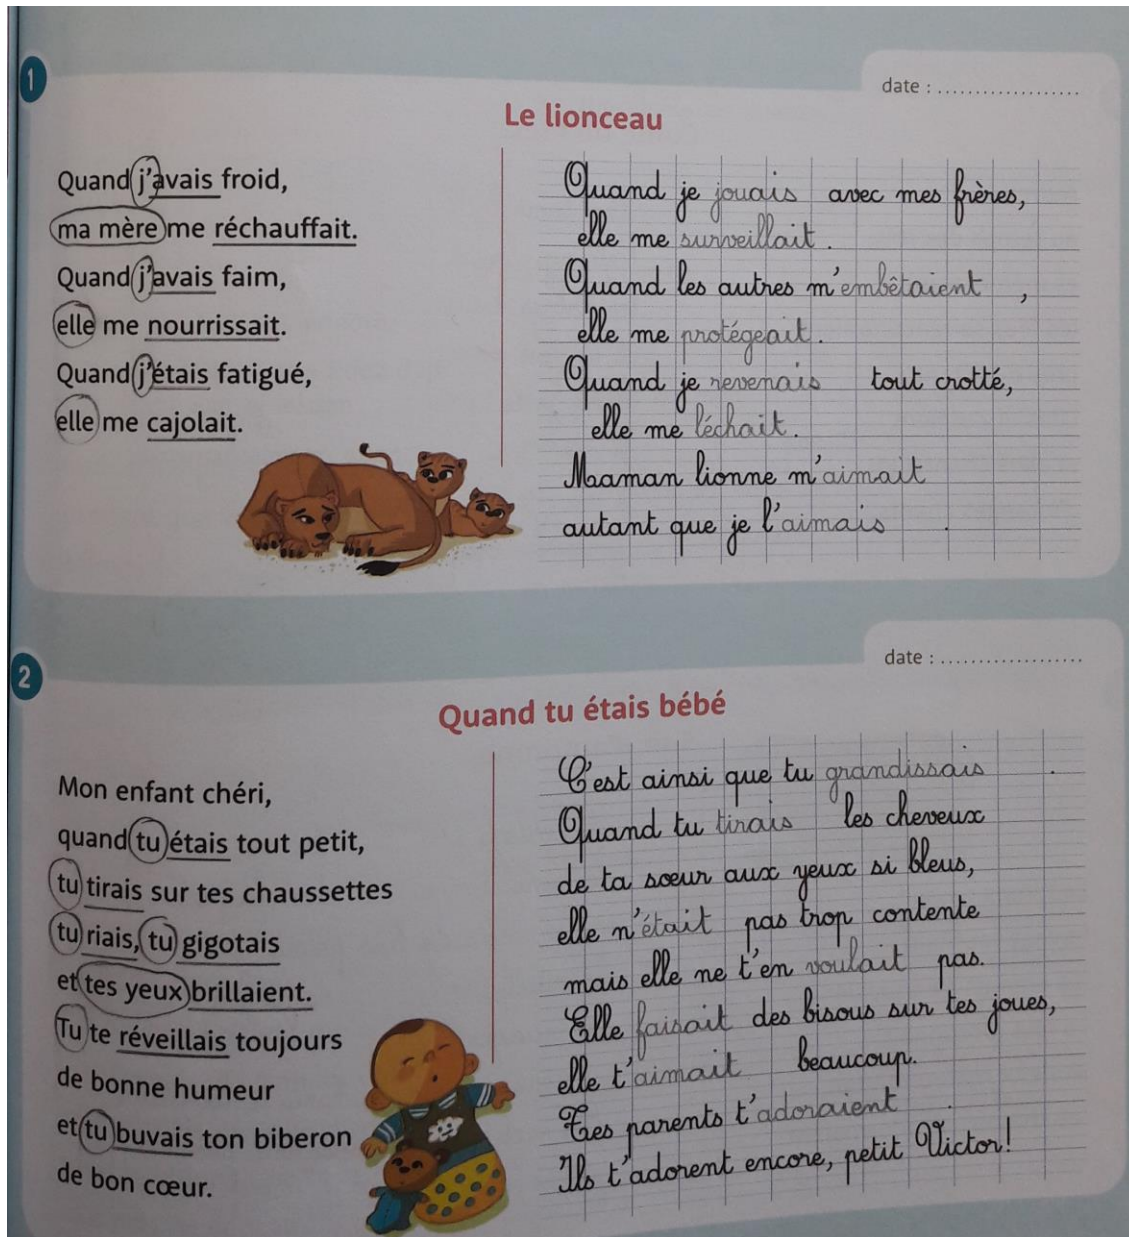 1
date : ...................
Le lionceau
Quand j'avais froid,
ma mère me réchauffait.
Quand j'avais faim,
elle me nourrissait.
Quand j'étais fatigué,
elle me cajolait.
Quand je jouais avec mes frères,
elle me surveillait.
Quand les autres m'embêtaient ,
elle me protégeait.
Quand je revenais tout crotté,
elle me léchait.
Maman lionne m'aimait
autant que je l'aimais .
2
date : ...................
Quand tu étais bébé
Mon enfant chéri,
quand tu étais tout petit,
tu tirais sur tes chaussettes
tu riais, tu gigotais
et tes yeux brillaient.
Tu te réveillais toujours
de bonne humeur
et tu buvais ton biberon
de bon cœur.
C'est ainsi que tu grandissais .
Quand tu tirais les cheveux
de ta sœur aux yeux si bleus,
elle n'était pas trop contente
mais elle ne t'en voulait pas.
Elle faisait des bisous sur tes joues,
elle t'aimait beaucoup.
Tes parents t'adoraient .
Ils t'adorent encore, petit Victor!